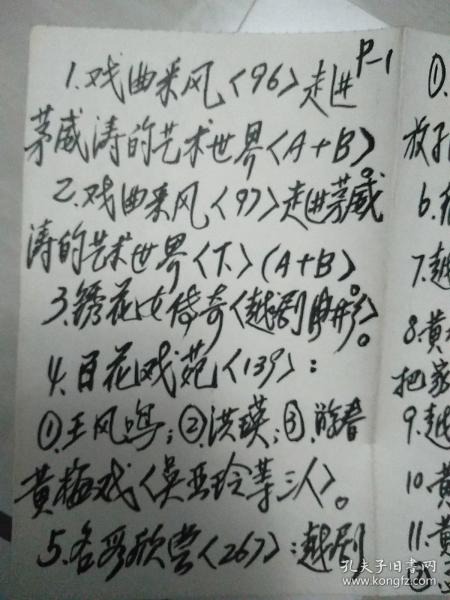 P-1
1.戏曲采风〈96〉走进
茅威涛的艺术世界〈A+B〉。
2.戏曲采风〈97〉走进茅威
涛的艺术世界〈下〉(A+B)。
3.绣花女传奇〈越剧电影〉。
4.百花戏苑〈139〉:
①.王凤鸣;②洪瑛;③.
黄梅戏〈吴亚玲等三人〉。
5.名段欣赏〈267〉:越剧
①.
放
6.
7.越
8.黄
把家
9.越
10黄
11.黄
孔夫子旧书网
www.kongfz.com